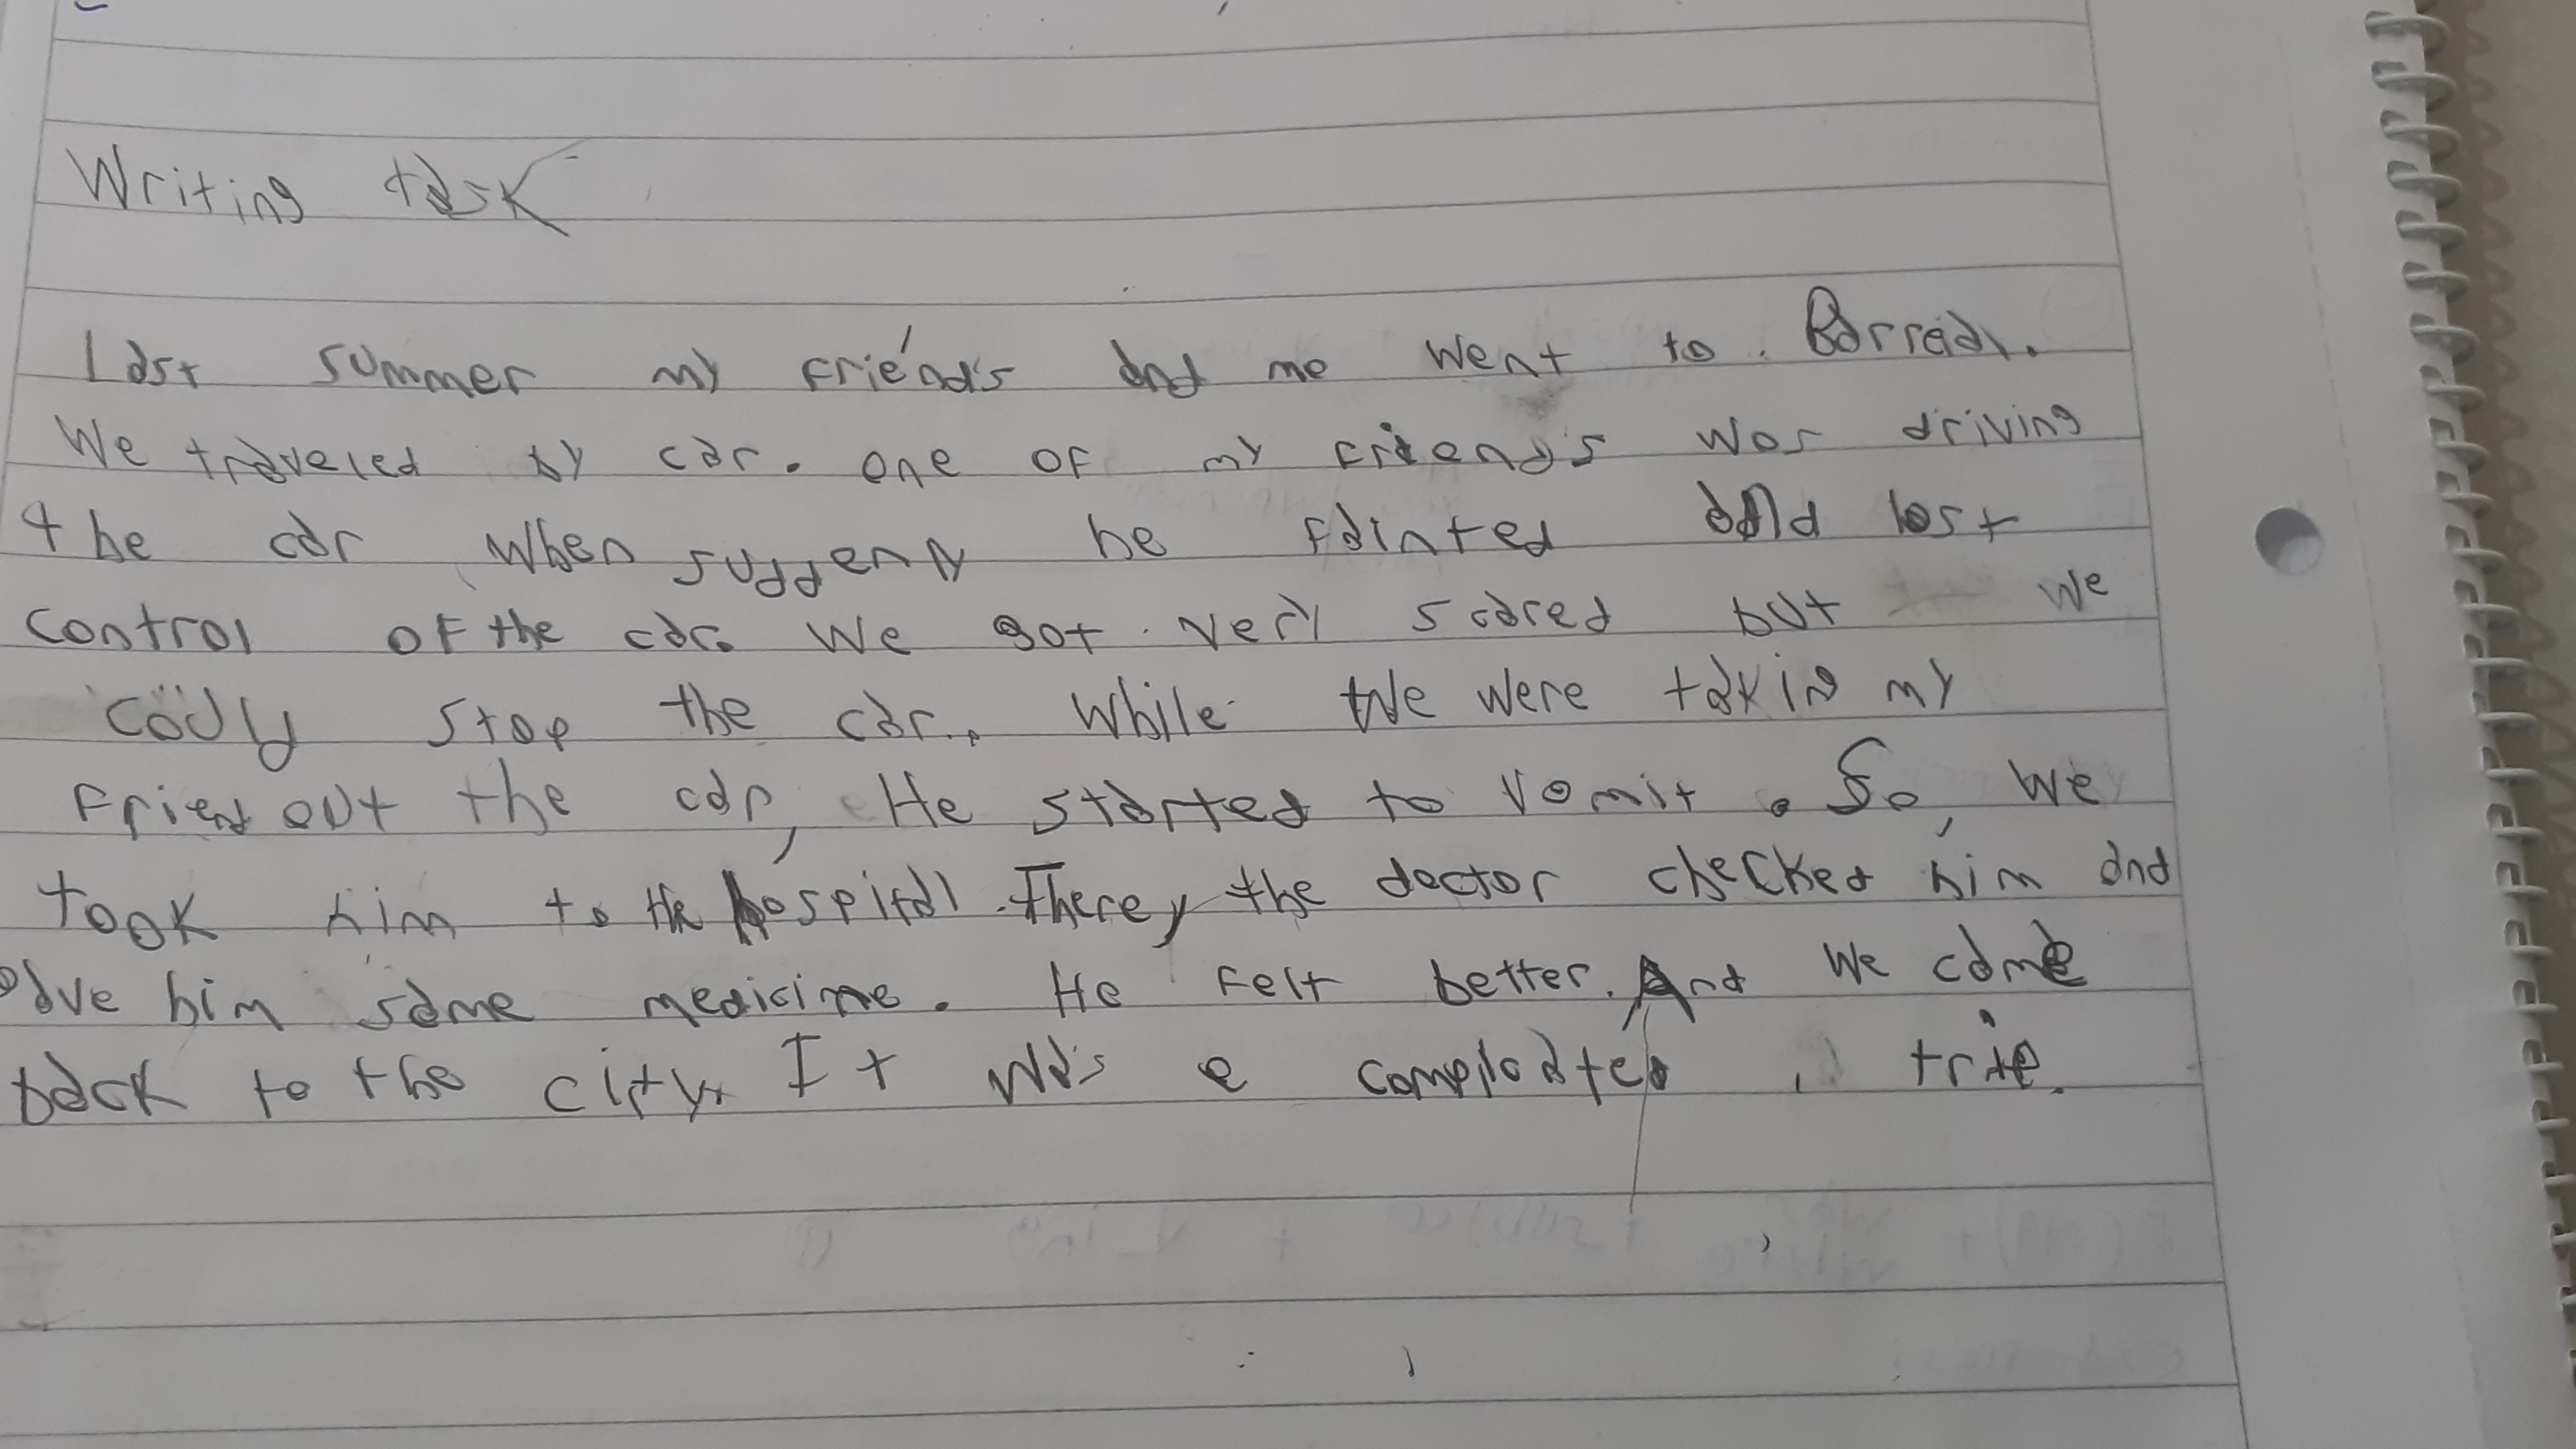 Writing task
Last summer my friends and me went to
We traveled by car. one of my friends was driving
the car when suddenly he fainted and lost
control of the car. We got very scared but we
could stop the car. While We were taking my
friend out the car, He started to vomit. So, we
took him to the hospital. There, the doctor checked him and
gave him some medicine. He felt better. And we came
back to the city. It was a trip.